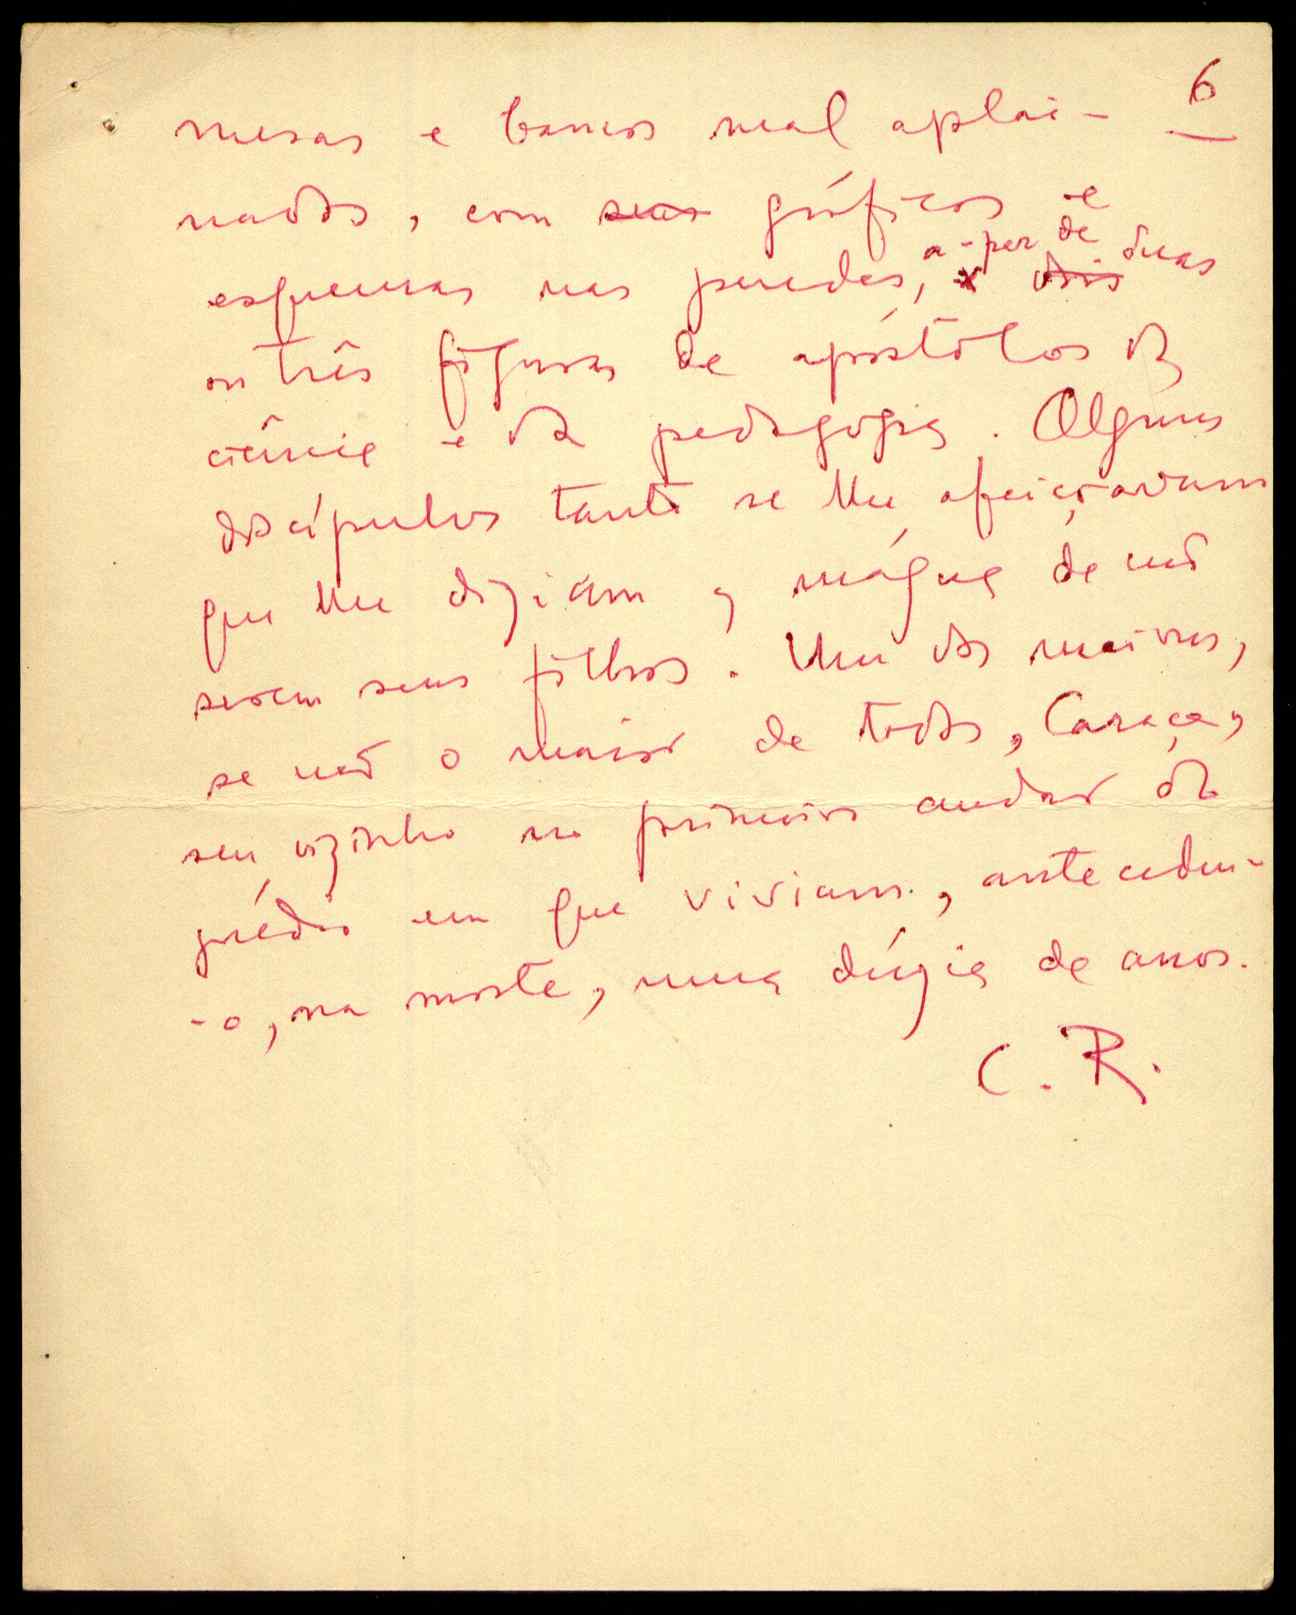 6
mesas e bancos mal aplai-
nados, com seus gráficos e
esquemas nas paredes, a-par de duas
ou três figuras de apóstolos da
ciência e da pedagogia. Alguns
discípulos tanto se lhe afeiçoavam
que lhe diziam a mágua de não
serem seus filhos. Um dos maiores,
se não o maior de todos, Caraça,
seu vizinho no primeiro andar do
prédio em que viviam, antecedeu-
-o, na morte, uma dúzia de anos.
C. R.